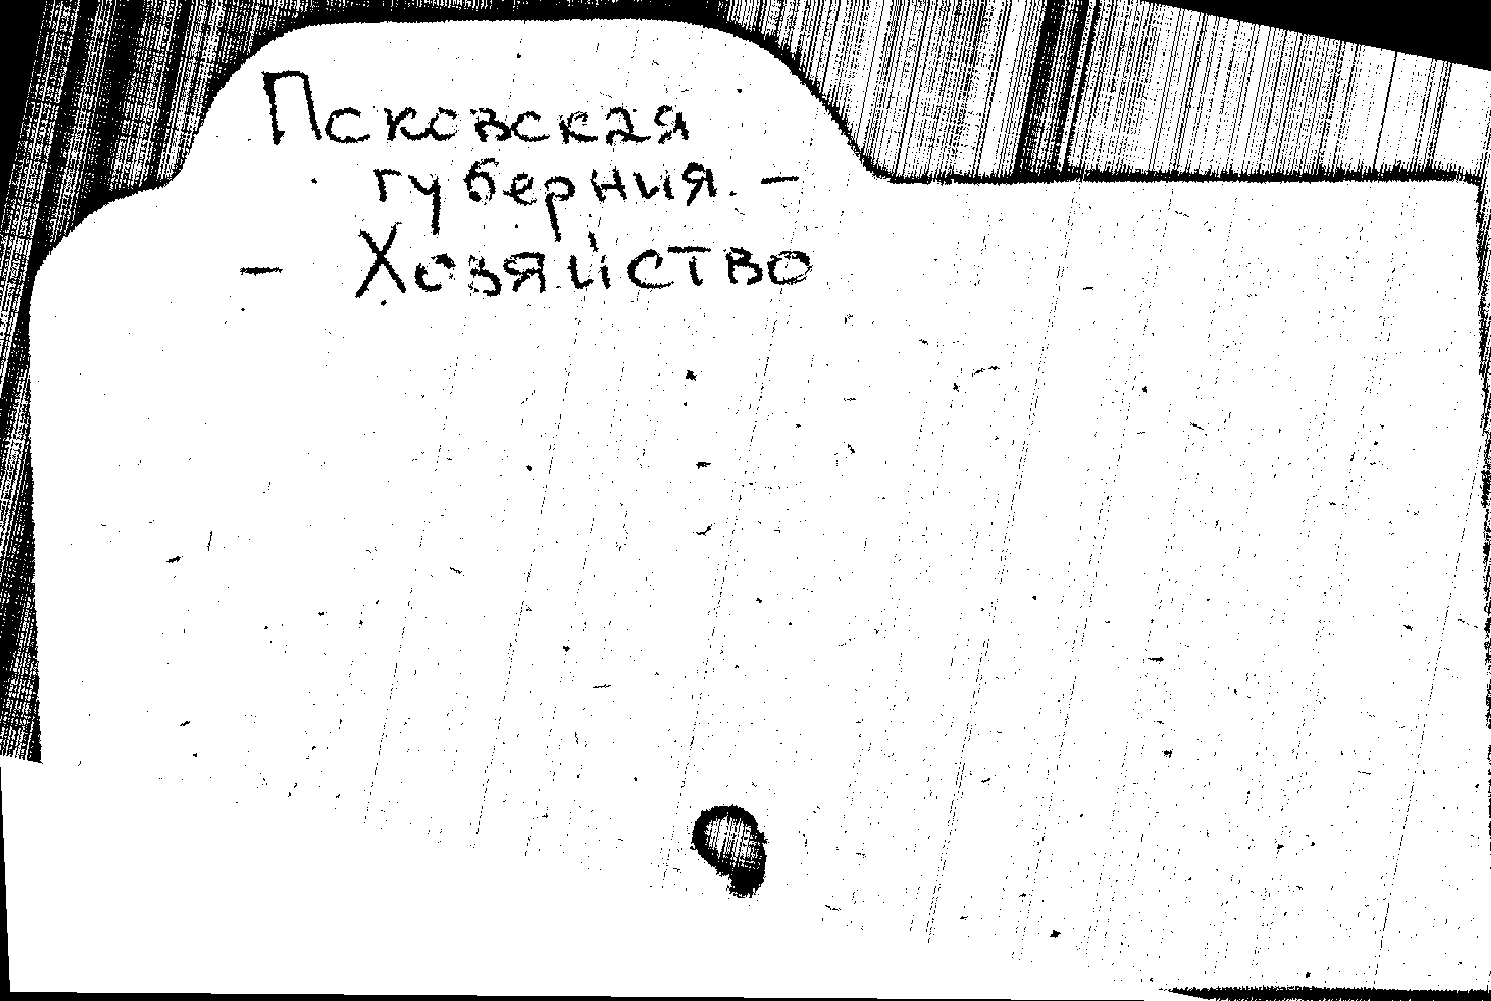 Псковская
губерния. –
– Хозяйство